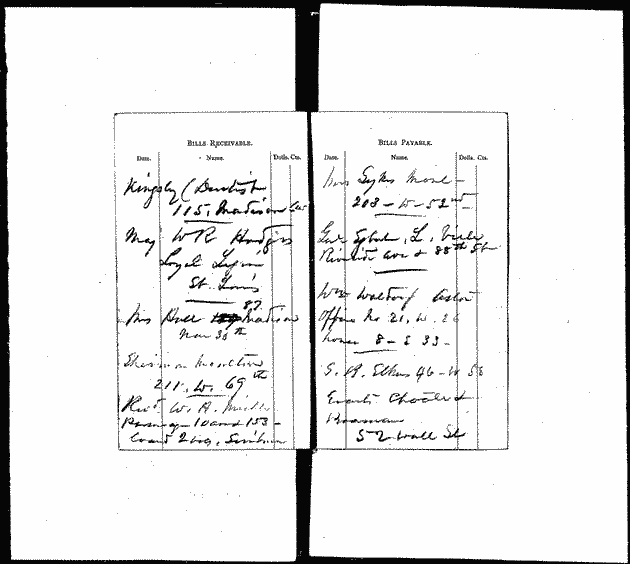 BILLS RECEIVABLE.
Date. Name. Dolls. Cts.
Kingsley (Dentist
115, Madison Ave
Maj W R Hodges
Loyal Legion
St. Louis
Mrs Hall 87 Madison
Nov 30th
Sherman Moulton
211. W. 69th
Revd W. A.
10 and 153 -
BILLS PAYABLE.
Date. Name. Dolls. Cts.
Sykes
203 - W - 52nd
Genl Egbert. L. Viele
Riverside Ave & 88th St
Wm Waldorf Astor
Office No 21. W. 26
house 8 - E 33 -
S. B. Elkins 46 - W 58
Evarts Choate &
Beaman
52 Wall St